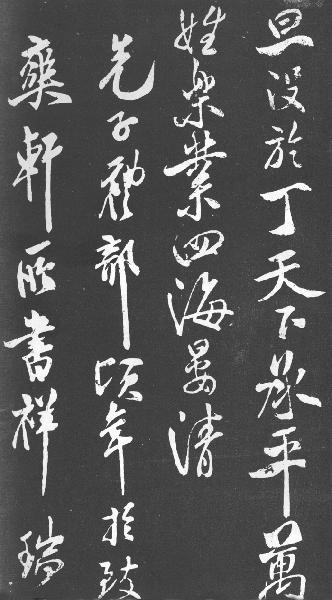 旦没於丁天下承平萬
姓樂業四海晏清
先子部頃年於致
爽軒所書祥瑞